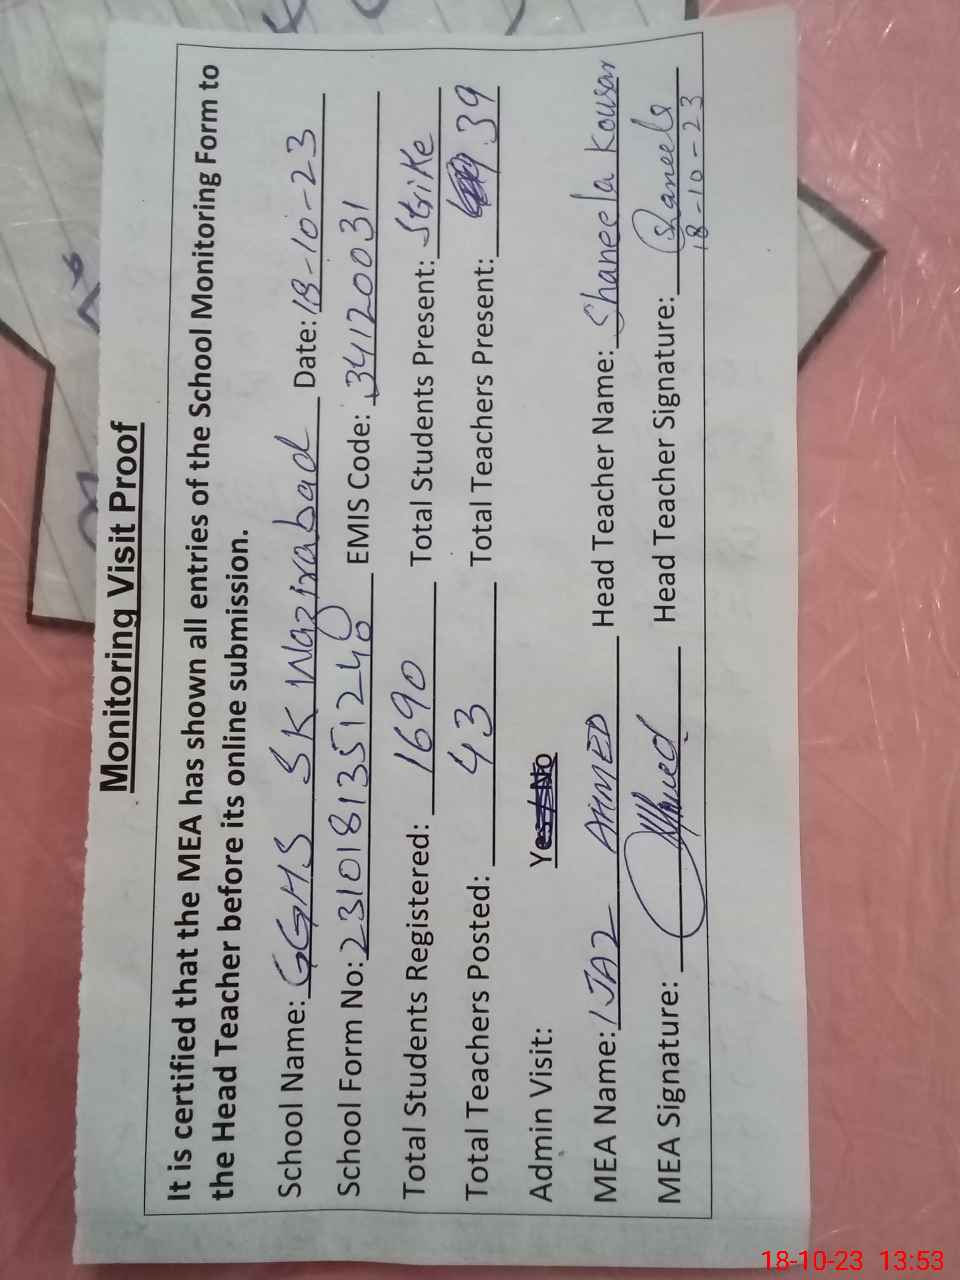 Monitoring Visit Proof
It is certified that the MEA has shown all entries of the School Monitoring Form to
the Head Teacher before its online submission.
School Name: GGHS SK Wazirabad Date: 18-10-23
School Form No: 2310181351240 EMIS Code: 34120031
Total Students Registered: 1690 Total Students Present: Strike
Total Teachers Posted: 43 Total Teachers Present: 39
Admin Visit: Yes/No
MEA Name: IJAZ AHMED Head Teacher Name: Shaneela Kousar
MEA Signature: Ahmed Head Teacher Signature: Shaneela
18-10-23
18-10-23 13:53